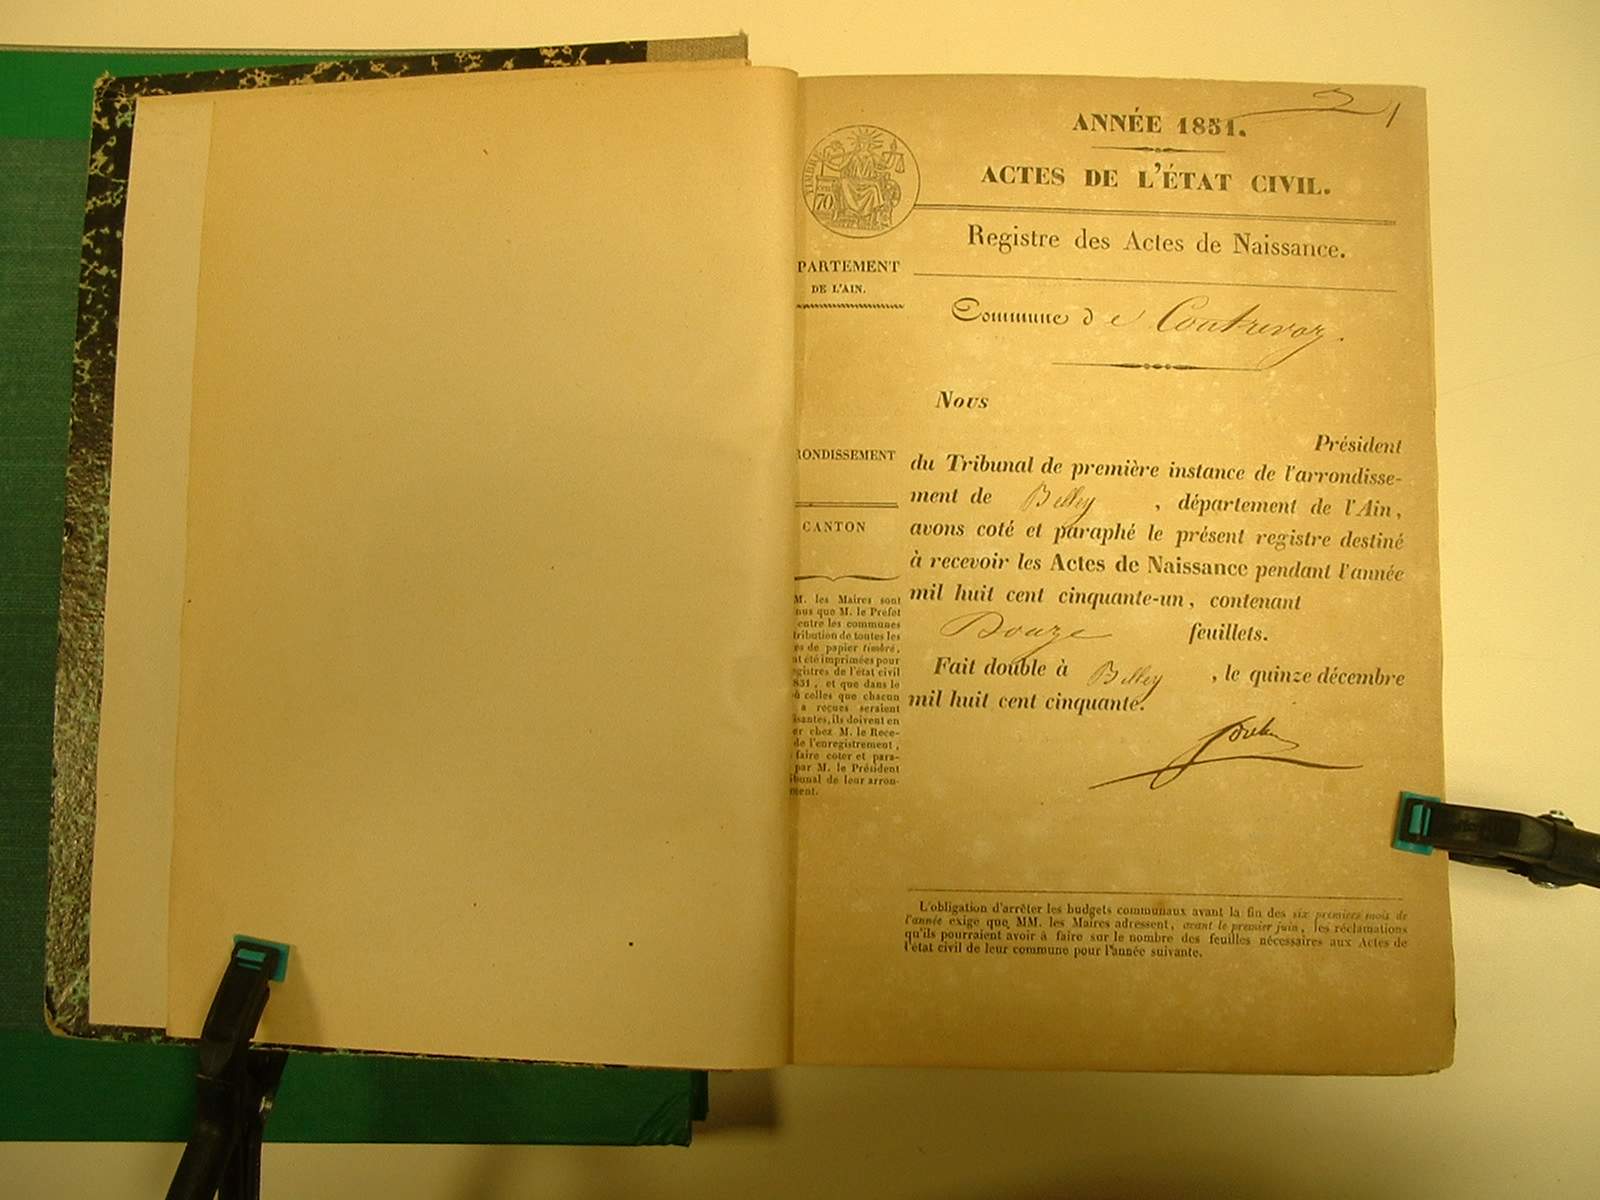 ANNÉE 1851.
ACTES DE L'ÉTAT CIVIL.
TIMBRE
70
Registre des Actes de Naissance.
PARTEMENT
DE L'AIN.
Commune de Contrevoz.
RONDISSEMENT
CANTON
M. les Maires sont
nus que M. le Préfet
entre les communes
tribution de toutes les
es de papier timbré,
nt été imprimées pour
gistres de l'état civil
851, et que dans le
ù celles que chacun
a reçues seraient
isantes, ils doivent en
er chez M. le Rece-
de l'enregistrement,
faire coter et para-
par M. le Président
ibunal de leur arron-
ment.
Nous
Président
du Tribunal de première instance de l'arrondisse-
ment de Belley, département de l'Ain,
avons coté et paraphé le présent registre destiné
à recevoir les Actes de Naissance pendant l'année
mil huit cent cinquante-un, contenant
Douze feuillets.
Fait double à Belley, le quinze décembre
mil huit cent cinquante.
L'obligation d'arrêter les budgets communaux avant la fin des six premiers mois de
l'année exige que MM. les Maires adressent, avant le premier juin, les réclamations
qu'ils pourraient avoir à faire sur le nombre des feuilles nécessaires aux Actes de
l'état civil de leur commune pour l'année suivante.